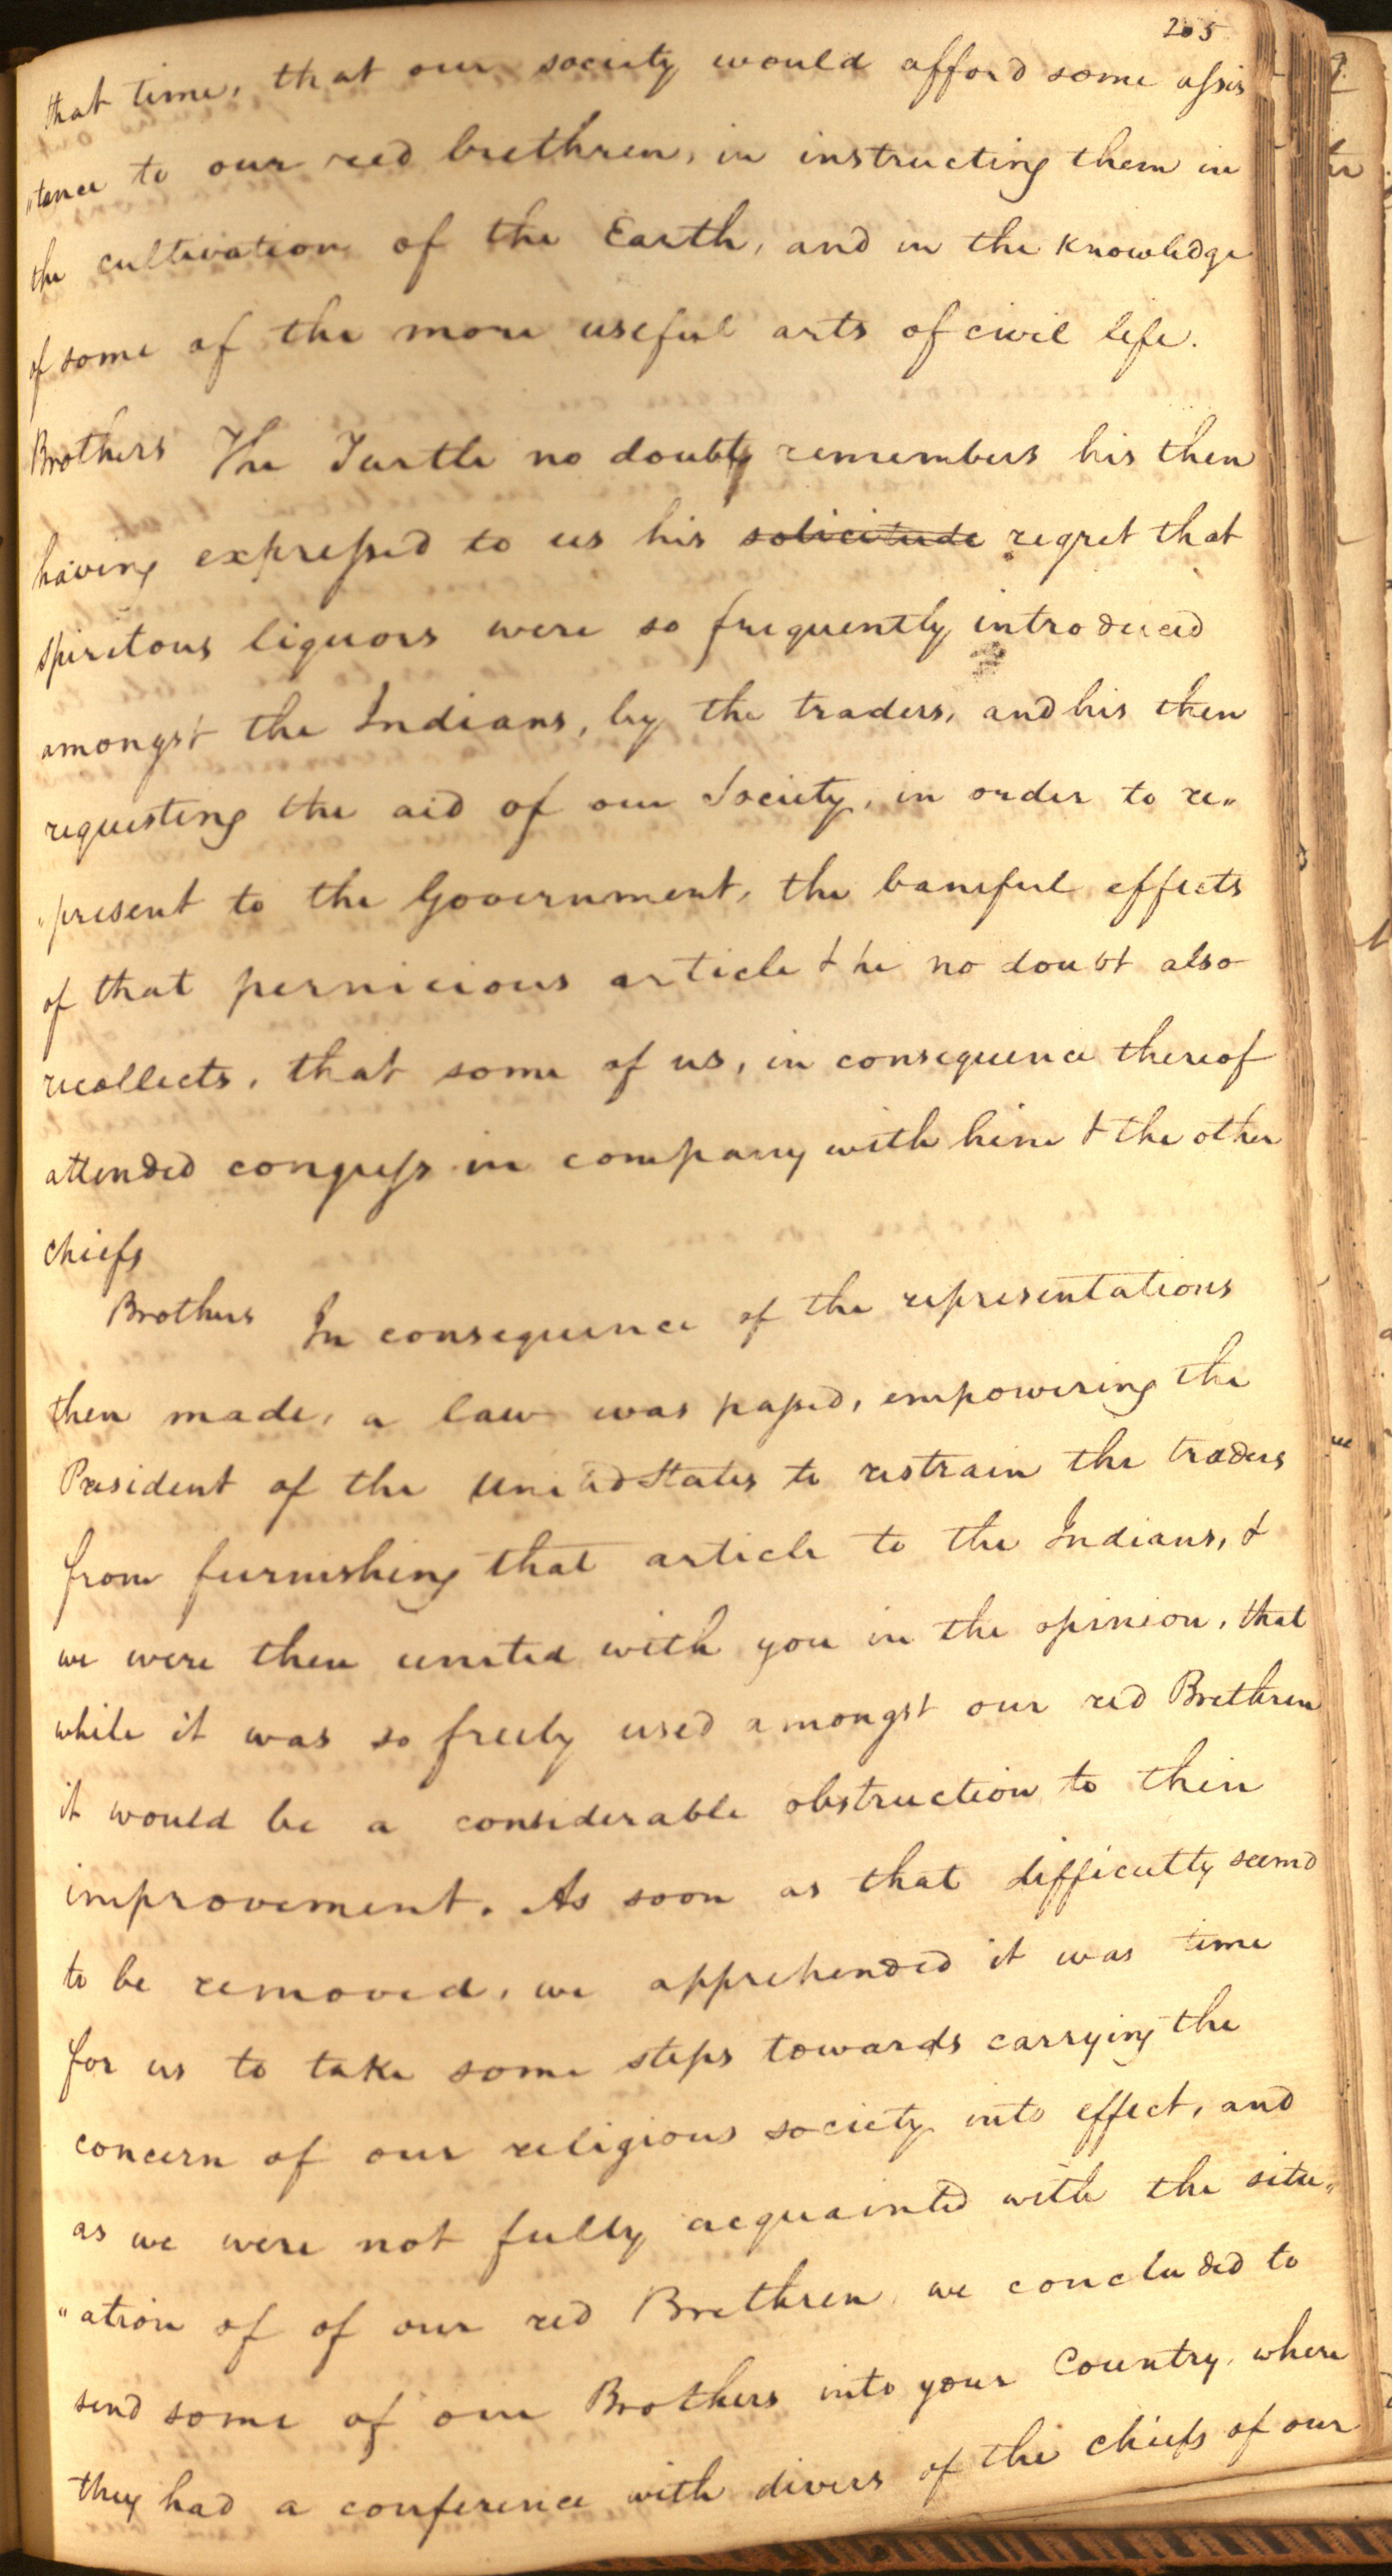 205
that time, that our society would afford some assis
"tence to our red brethren, in instructing them in
the cultivation of the Earth, and in the Knowledge
of some of the more useful arts of civil life.
Brothers The Turtle no doubt remembers his then
having expressed to us his solicitude regret that
spiritous liquors were so frequently introduced
amongst the Indians, by the traders, and his then
requesting the aid of our Society, in order to re"
"present to the Government, the baneful effects
of that pernicious article & he no doubt also
recollects, that some of us, in consequence thereof
attended congress in company with him & the other
chiefs
Brothers In consequence of the representations
then made, a law was passed, empowering the
President of the United States to restrain the traders
from furnishing that article to the Indians, &
we were then united with you in the opinion, that
while it was so freely used amongst our red Brethren
it would be a considerable obstruction to their
improvement. As soon as that difficulty seemd
to be removed, we apprehended it was time
for us to take some steps towards carrying the
concern of our religious society into effect, and
as we were not fully acquainted with the situ"
"ation of of our red Brethren, we concluded to
send some of our Brothers into your Country, where
they had a conference with divers of the chiefs of our